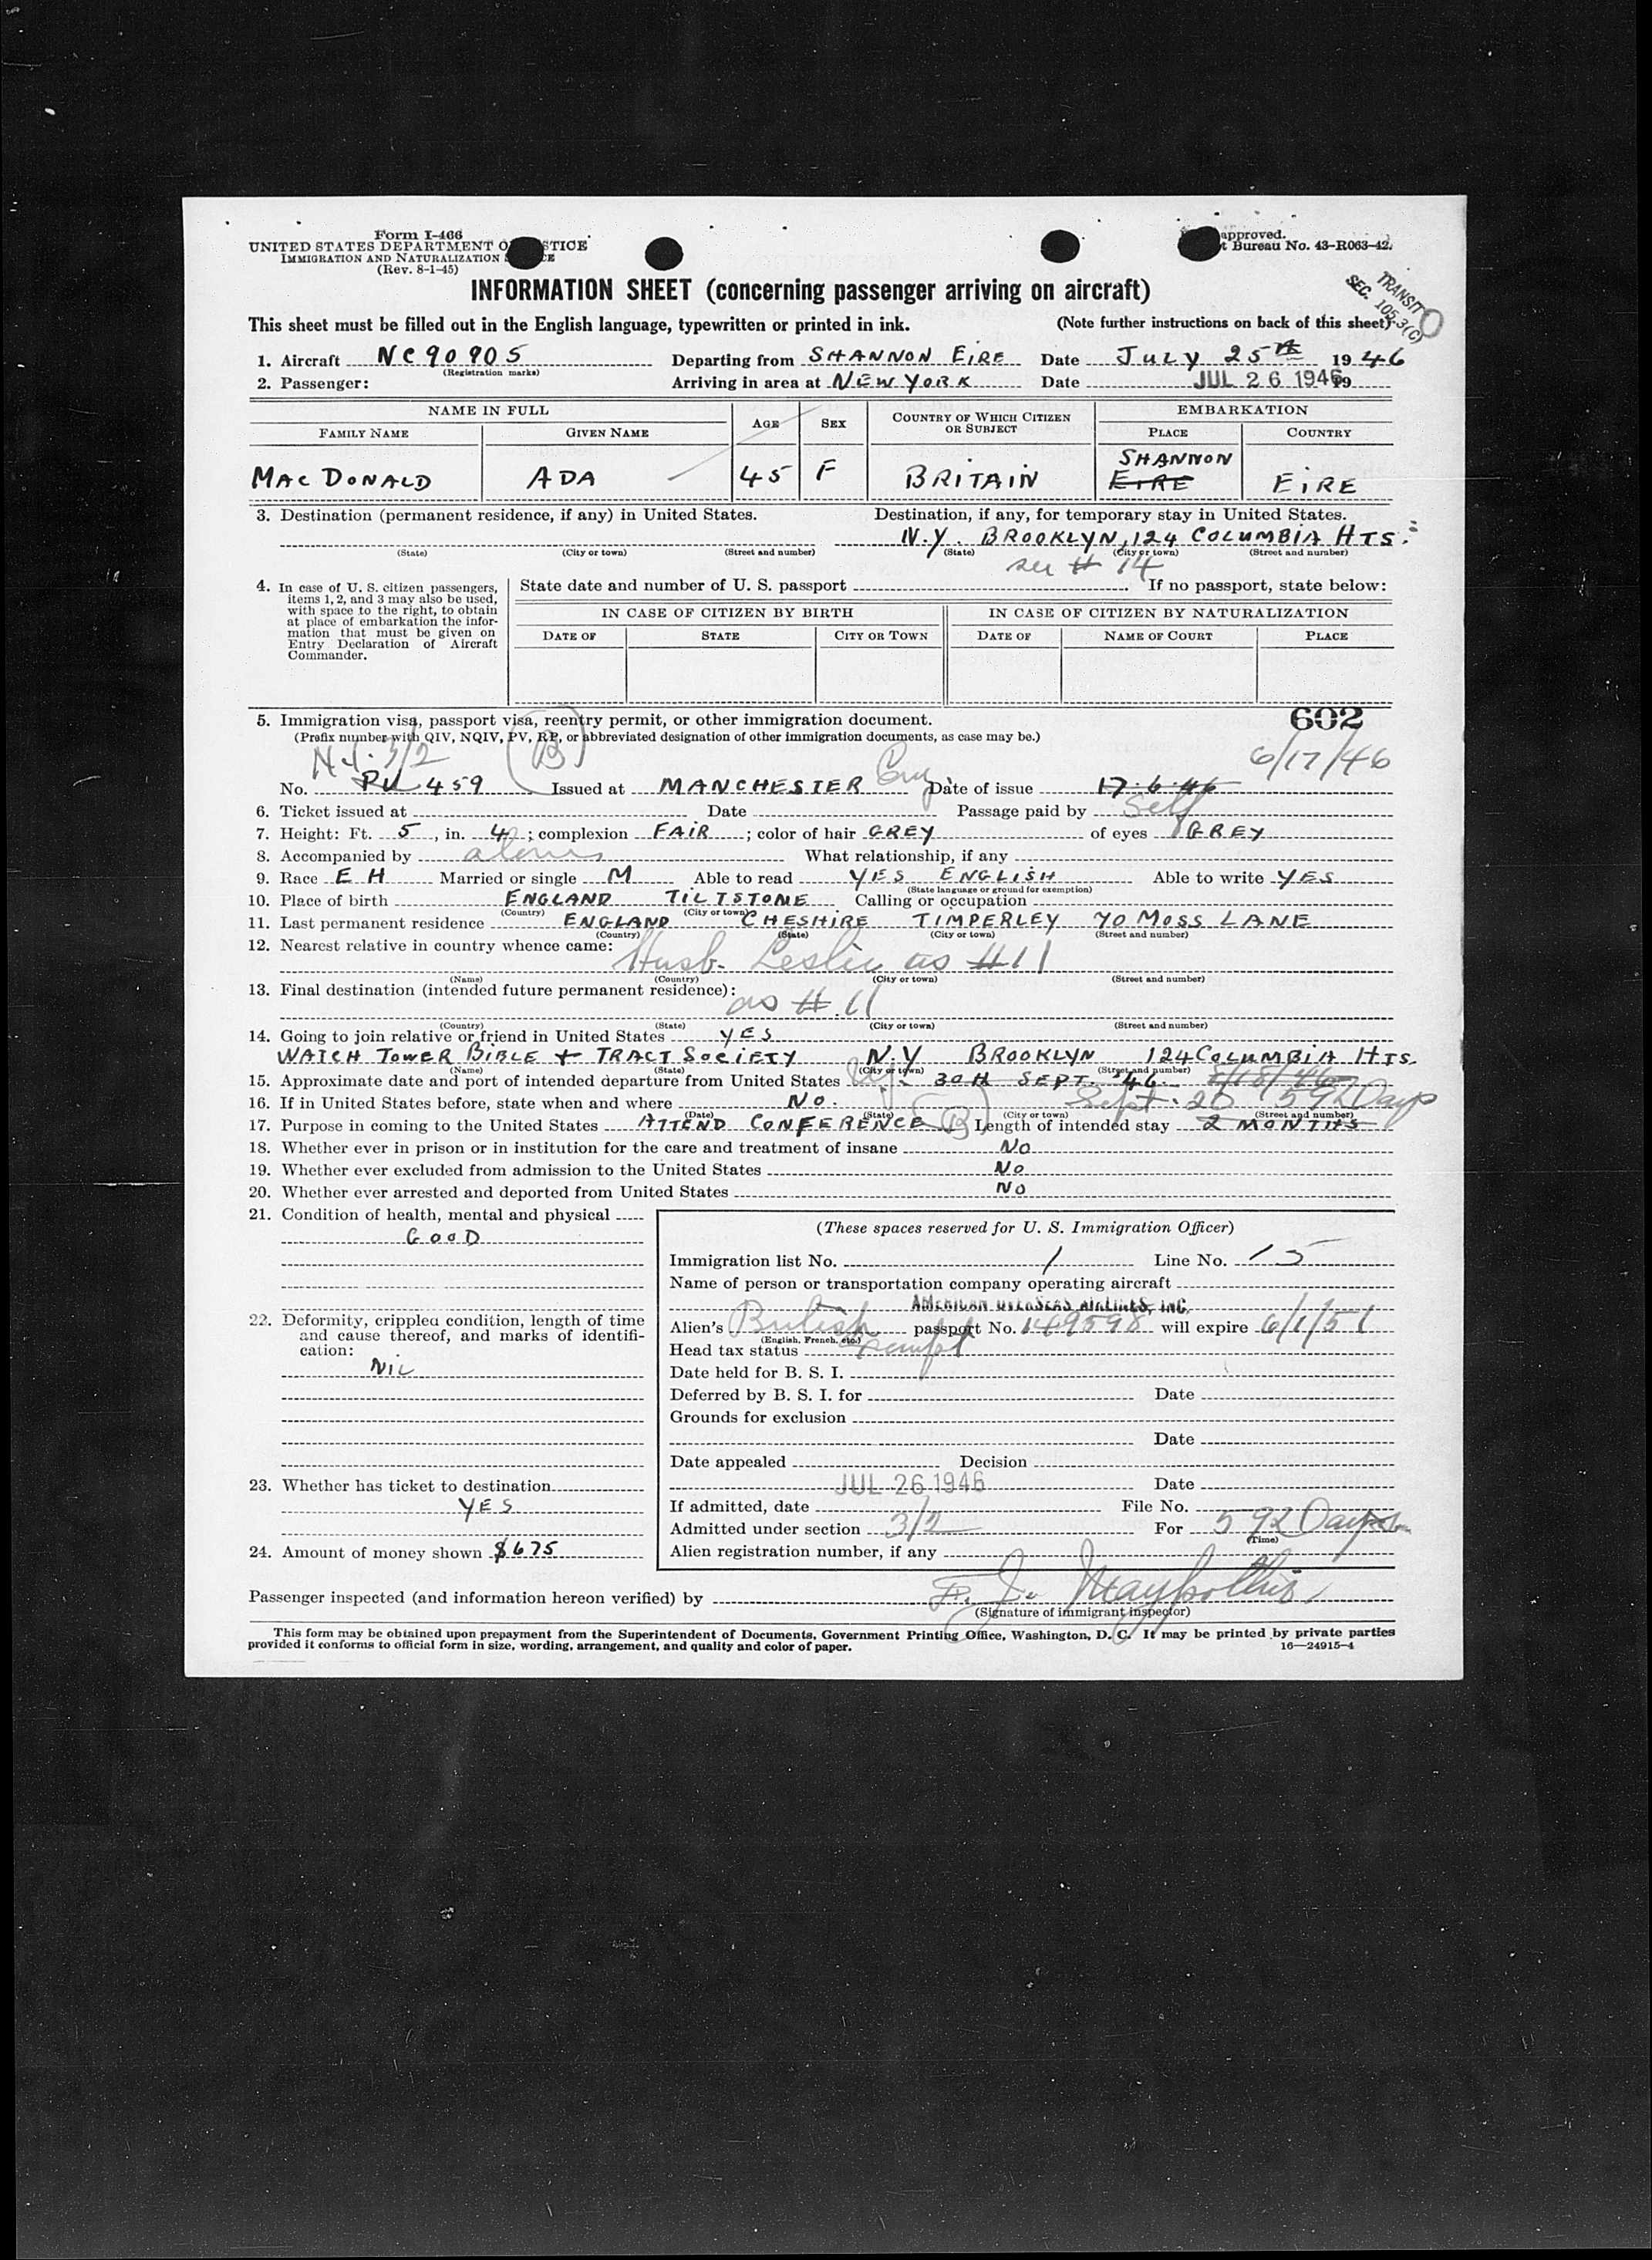 Form I-466
UNITED STATES DEPARTMENT O STICE
IMMIGRATION AND NATURALIZATION S CE
(Rev. 8-1-45)
approved.
t Bureau No. 43-R063-42.
TRANSIT
SEC. 105.3(C)
INFORMATION SHEET (concerning passenger arriving on aircraft)
This sheet must be filled out in the English language, typewritten or printed in ink. (Note further instructions on back of this sheet)
1. Aircraft NC90905 Departing from SHANNON EIRE Date JULY 25th 1946
(Registration marks)
2. Passenger: Arriving in area at NEW YORK Date JUL 26 1946 19
NAME IN FULL AGE SEX COUNTRY OF WHICH CITIZEN OR SUBJECT EMBARKATION
FAMILY NAME GIVEN NAME PLACE COUNTRY
SHANNON
MACDONALD ADA 45 F BRITAIN EIRE EIRE
3. Destination (permanent residence, if any) in United States. Destination, if any, for temporary stay in United States.
N.Y. BROOKLYN, 124 COLUMBIA HTS.
(State) (City or town) (Street and number) (State) (City or town) (Street and number)
see # 14
4. In case of U. S. citizen passengers, items 1, 2, and 3 may also be used, with space to the right, to obtain at place of embarkation the information that must be given on Entry Declaration of Aircraft Commander.
State date and number of U. S. passport If no passport, state below:
IN CASE OF CITIZEN BY BIRTH IN CASE OF CITIZEN BY NATURALIZATION
DATE OF STATE CITY OR TOWN DATE OF NAME OF COURT PLACE
5. Immigration visa, passport visa, reentry permit, or other immigration document. 602
(Prefix number with QIV, NQIV, PV, RP, or abbreviated designation of other immigration documents, as case may be.)
3/2 (B) 6/17/46
No. PV 459 Issued at MANCHESTER Eng Date of issue 17.6.46
6. Ticket issued at Date Passage paid by Self
7. Height: Ft. 5, in. 4; complexion FAIR; color of hair GREY of eyes GREY
8. Accompanied by alone What relationship, if any
9. Race E H Married or single M Able to read YES ENGLISH Able to write YES
(State language or ground for exemption)
10. Place of birth ENGLAND TILTSTONE Calling or occupation
(Country) (City or town)
11. Last permanent residence ENGLAND CHESHIRE TIMPERLEY 70 MOSS LANE
(Country) (State) (City or town) (Street and number)
12. Nearest relative in country whence came: Husb. Leslie as #11
(Name) (Country) (City or town) (Street and number)
13. Final destination (intended future permanent residence): as #.11
(Country) (State) (City or town) (Street and number)
14. Going to join relative or friend in United States YES
WATCH TOWER BIBLE + TRACT SOCIETY N.Y BROOKLYN 124 COLUMBIA HTS.
(Name) (State) (City or town) (Street and number)
15. Approximate date and port of intended departure from United States 30TH SEPT. '46
16. If in United States before, state when and where NO. Sept. 20 592 Days
(Date) (State) (City or town) (Street and number)
17. Purpose in coming to the United States ATTEND CONFERENCE (B) Length of intended stay 2 MONTHS
18. Whether ever in prison or in institution for the care and treatment of insane NO
19. Whether ever excluded from admission to the United States NO
20. Whether ever arrested and deported from United States NO
21. Condition of health, mental and physical
GOOD
22. Deformity, crippled condition, length of time and cause thereof, and marks of identification:
NIL
23. Whether has ticket to destination
YES
24. Amount of money shown $675
(These spaces reserved for U. S. Immigration Officer)
Immigration list No. 1 Line No. 15
Name of person or transportation company operating aircraft
AMERICAN OVERSEAS AIRLINES, INC.
Alien's British passport No. 149598 will expire 6/1/51
(English, French, etc.)
Head tax status exempt
Date held for B. S. I.
Deferred by B. S. I. for Date
Grounds for exclusion
Date
Date appealed Decision
JUL 26 1946 Date
If admitted, date File No.
Admitted under section 3/2 For 592 Days
(Time)
Alien registration number, if any
Passenger inspected (and information hereon verified) by
(Signature of immigrant inspector)
This form may be obtained upon prepayment from the Superintendent of Documents, Government Printing Office, Washington, D. C. It may be printed by private parties
provided it conforms to official form in size, wording, arrangement, and quality and color of paper. 16—24915-4